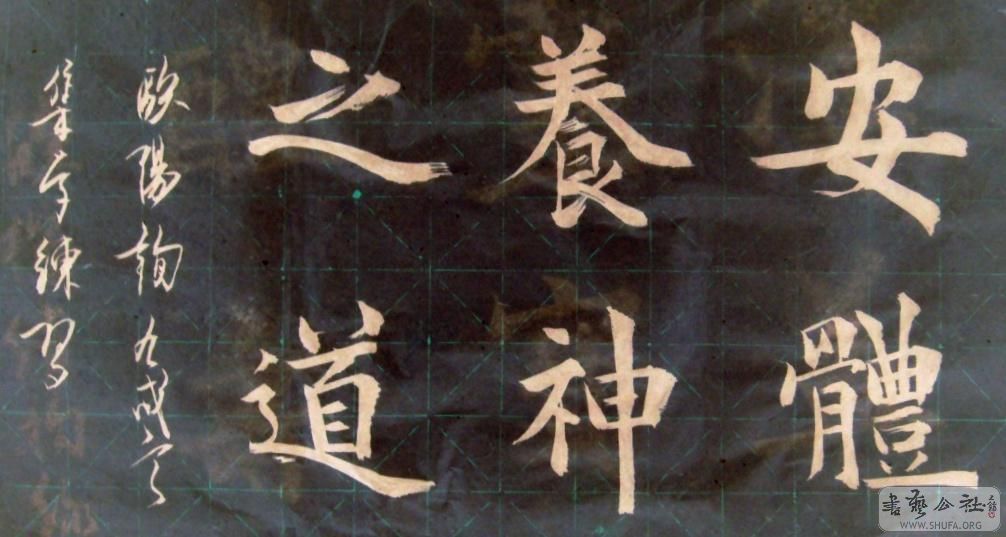 安體
養神
之道
歐陽詢九成宮
集字練習
書藝公社
WWW.SHUFA.ORG